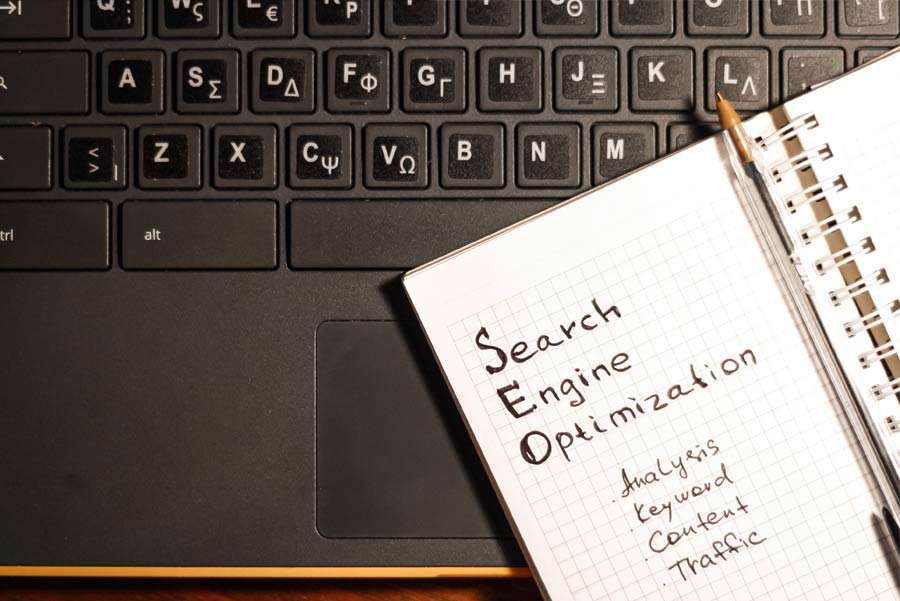 Q ;
W ς
E €
R Ρ
Θ
Π
[
A
S Σ
D Δ
F Φ
G Γ
H
J Ξ
K
L Λ
< >
Z
X
C Ψ
V Ω
B
N
M
trl
alt
Search
Engine
Optimization
. Analysis
. Keyword
. Content
. Traffic